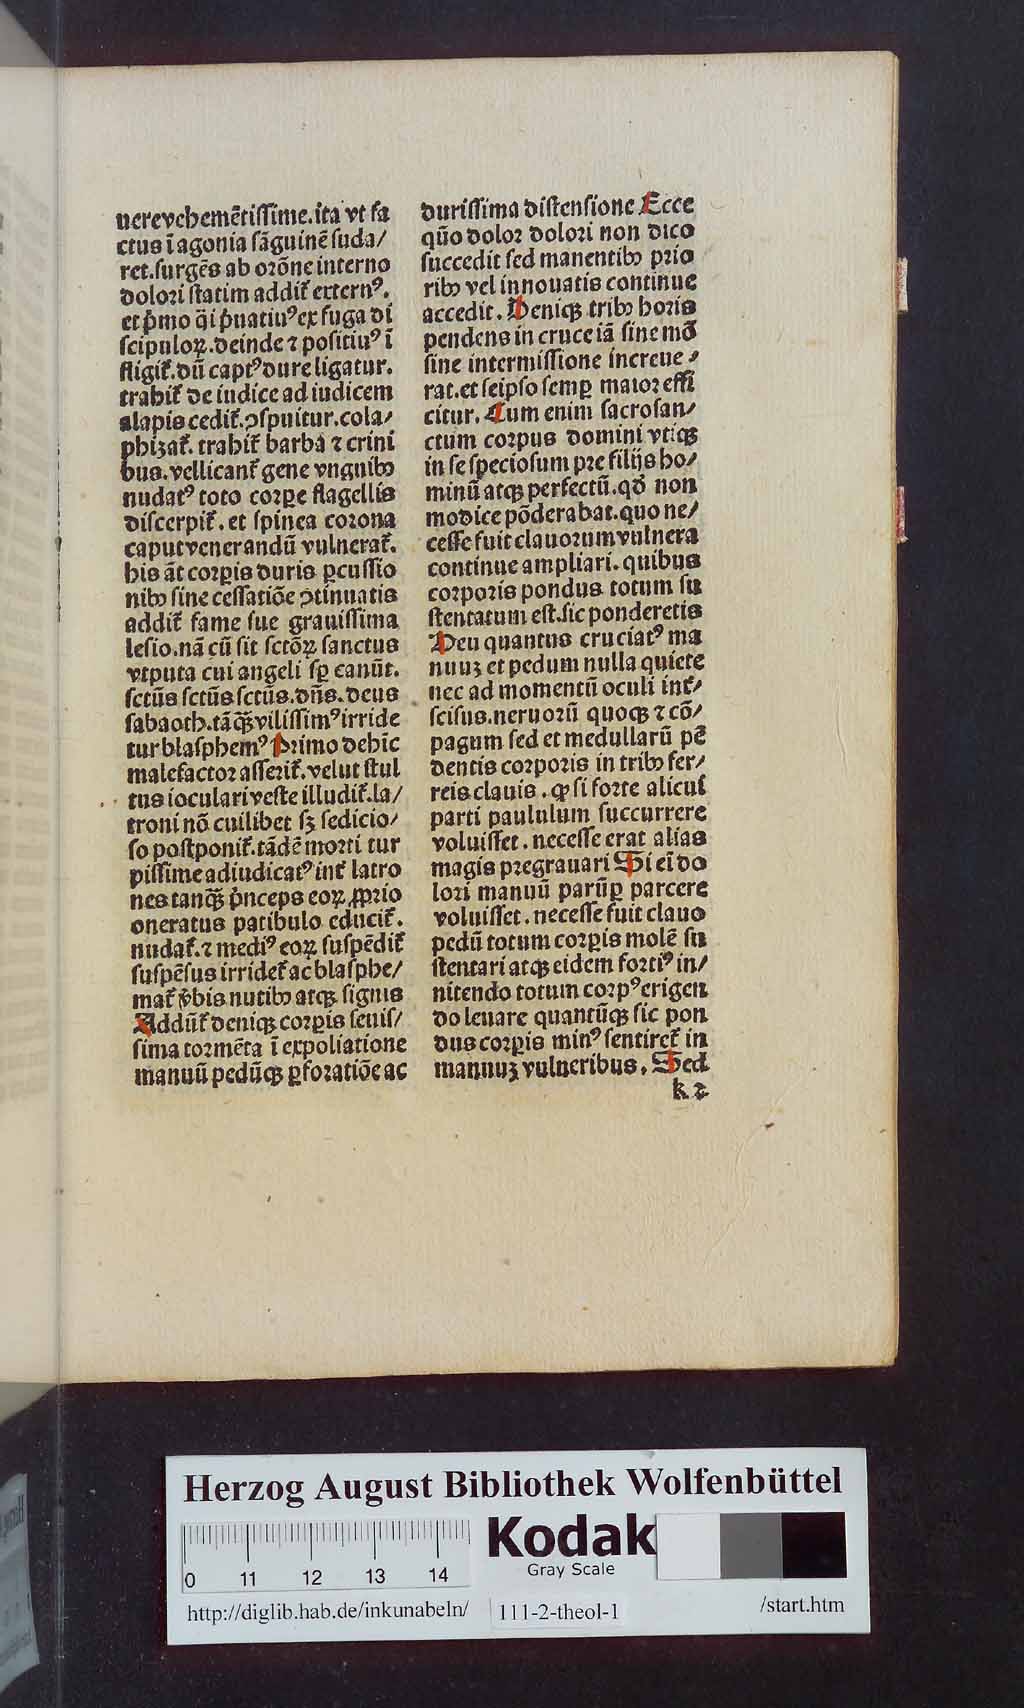 uere vehemẽtissime. ita vt fa
ctus ĩ agonia sãguinẽ suda/
ret. surgẽs ab orõne interno
dolori statim addit᷑ externꝰ.
et p̃mo q̃i p̃uatiuꝰ ex fuga di
scipuloꝝ. deinde ⁊ positiuꝰ ĩ
fligit᷑. dũ captꝰ dure ligatur.
trahit᷑ de iudice ad iudicem
alapis cedit᷑. ꝯspuitur. cola/
phizat᷑. trahit᷑ barba ⁊ crini
bus. vellicant᷑ gene vnguibꝰ
nudatꝰ toto corꝑe flagellis
discerpit᷑. et spinea corona
caput venerandũ vulnerat᷑.
his ãt corꝑis duris ꝑcussio
nibꝰ sine cessatiõe ꝯtinuatis
addit᷑ fame sue grauissima
lesio. nã cũ sit sctõꝝ sanctus
vtputa cui angeli sꝑ canũt.
sctũs sctũs sctũs. dñs. deus
sabaoth. tãꝙ̃ vilissimꝰ irride
tur blasphemꝰ Primo dehĩc
malefactor asserit᷑. velut stul
tus ioculari veste illudit᷑. la/
troni nõ cuilibet sꝫ sedicio/
so postponit᷑. tãdẽ morti tur
pissime adiudicatꝰ int᷑ latro
nes tanꝙ̃ p̃nceps eoꝝ ꝓprio
oneratus patibulo educit᷑.
nudat᷑. ⁊ mediꝰ eoꝝ suspẽdit᷑
suspẽsus irridet᷑ ac blasphe/
mat᷑ v̾bis nutibꝰ atqꝫ signis
Addũt᷑ deniqꝫ corꝑis seuis/
sima tormẽta ĩ expoliatione
manuũ pedũqꝫ ꝑforatiõe ac
durissima distensione Ecce
quõ dolor dolori non dico
succedit sed manentibꝰ prio
ribꝰ vel innouatis continue
accedit. Deniqꝫ tribꝰ horis
pendens in cruce iã sine mõ
sine intermissione increue/
rat. et seipso semꝑ maior effi
citur. Cum enim sacrosan/
ctum corpus domini vtiqꝫ
in se speciosum pre filijs ho/
minũ atqꝫ perfectũ. qð non
modice põderabat. quo ne/
cesse fuit clauorum vulnera
continue ampliari. quibus
corporis pondus totum su
stentatum est. sic ponderetis
Heu quantus cruciatꝰ ma
nuuꝫ et pedum nulla quiete
nec ad momentũ oculi int᷑/
scisus. neruorũ quoqꝫ ⁊ cõ/
pagum sed et medullarũ pẽ
dentis corporis in tribꝰ fer/
reis clauis. ꝙ si forte alicui
parti paululum succurrere
voluisset. necesse erat alias
magis pregrauari Si eĩ do
lori manuũ parũꝑ parcere
voluisset. necesse fuit clauo
pedũ totum corꝑis molẽ su
stentari atqꝫ eidem fortiꝰ in/
nitendo totum corpꝰ erigen
do leuare quantũqꝫ sic pon
dus corꝑis minꝰ sentiret᷑ in
manuuꝫ vulneribus. Sed
k 2
Herzog August Bibliothek Wolfenbüttel
0 11 12 13 14
Kodak
Gray Scale
http://diglib.hab.de/inkunabeln/ 111-2-theol-1 /start.htm